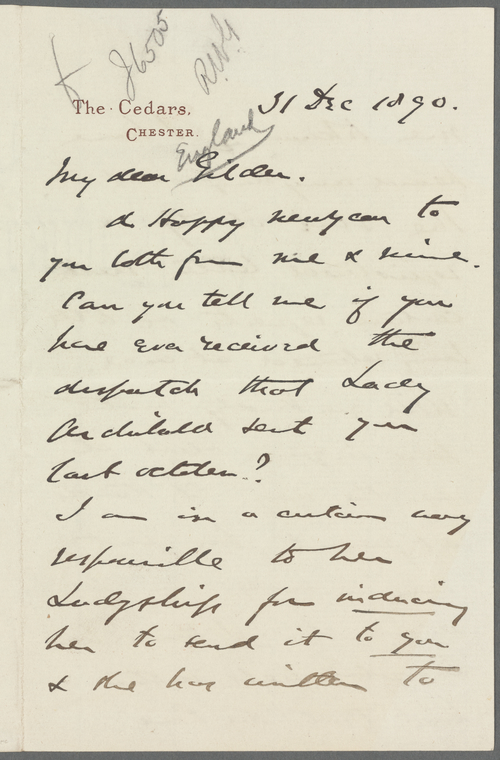 86505
RWG
The Cedars,
Chester.
England
31 Dec 1890.
My dear Gilder.
A Happy newyear to
you both from me & mine.
Can you tell me if you
have ever received the
dispatch that Lady
Archibald sent you
last october?
I am in a certain way
responsible to her
Ladyship for inducing
her to send it to you
& she has written to